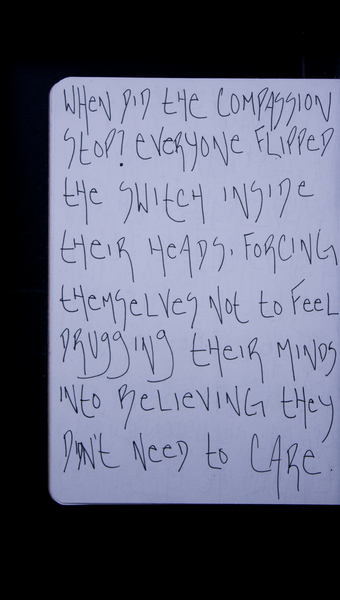 WHEN DID THE COMPASSION
STOP? EVERYONE FLIPPED
THE SWITCH INSIDE
THEIR HEADS. FORCING
THEMSELVES NOT TO FEEL
DRUGGING THEIR MINDS
INTO BELIEVING THEY
DIDN'T NEED TO CARE.